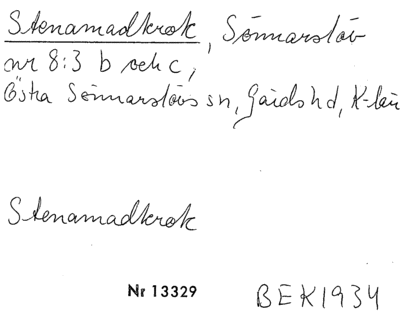 Stenamadkrok, Sönnarslöv
nr 8:3 b och c,
Östra Sönnarslövs sn, Gärds hd, K-län
Stenamadkrok
Nr 13329 BEK1934